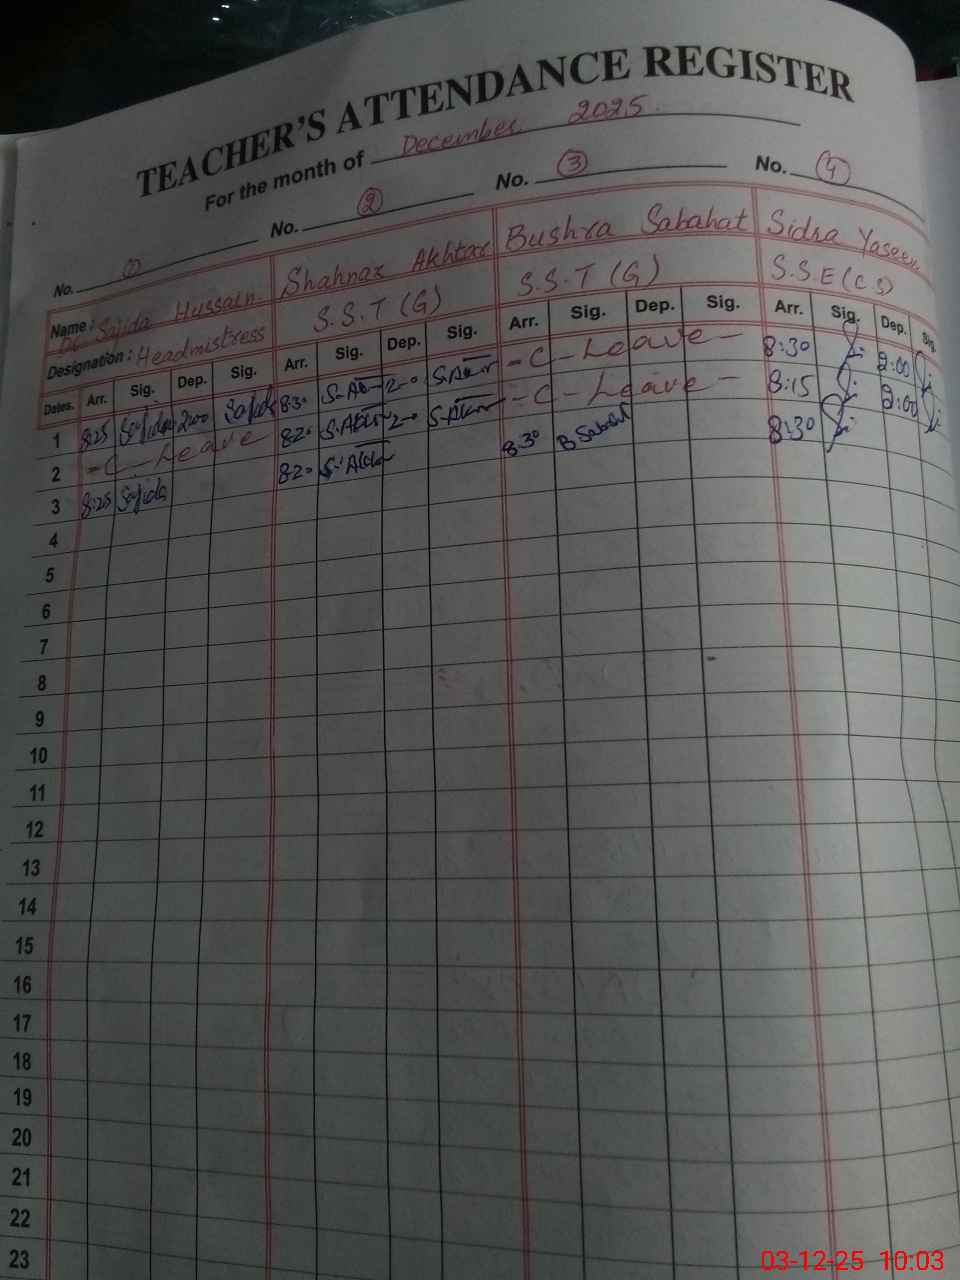 TEACHER'S ATTENDANCE REGISTER
For the month of December 2025
No. ① No. ② No. ③ No. ④
Name: Sajida Hussain Shahnaz Akhtar Bushra Sabahat Sidra Yaseen
Designation: Headmistress S.S.T (G) S.S.T (G) S.S.E (C S)
Dates. Arr. Sig. Dep. Sig. Arr. Sig. Dep. Sig. Arr. Sig. Dep. Sig. Arr. Sig. Dep. Sig.
1 8:25 Sajida 2:00 Sajida 8:30 S.Akhtar 2-0 S.Akhtar - C - Leave - 8:30 2:00
2 - C - Leave 8:20 S.Akhtar 2-0 S.Akhtar - C - Leave - 8:15 2:00
3 8:25 Sajida 8:20 S.Akhtar 8:30 B Sabahat 8:30
4
5
6
7
8
9
10
11
12
13
14
15
16
17
18
19
20
21
22
23
03-12-25 10:03